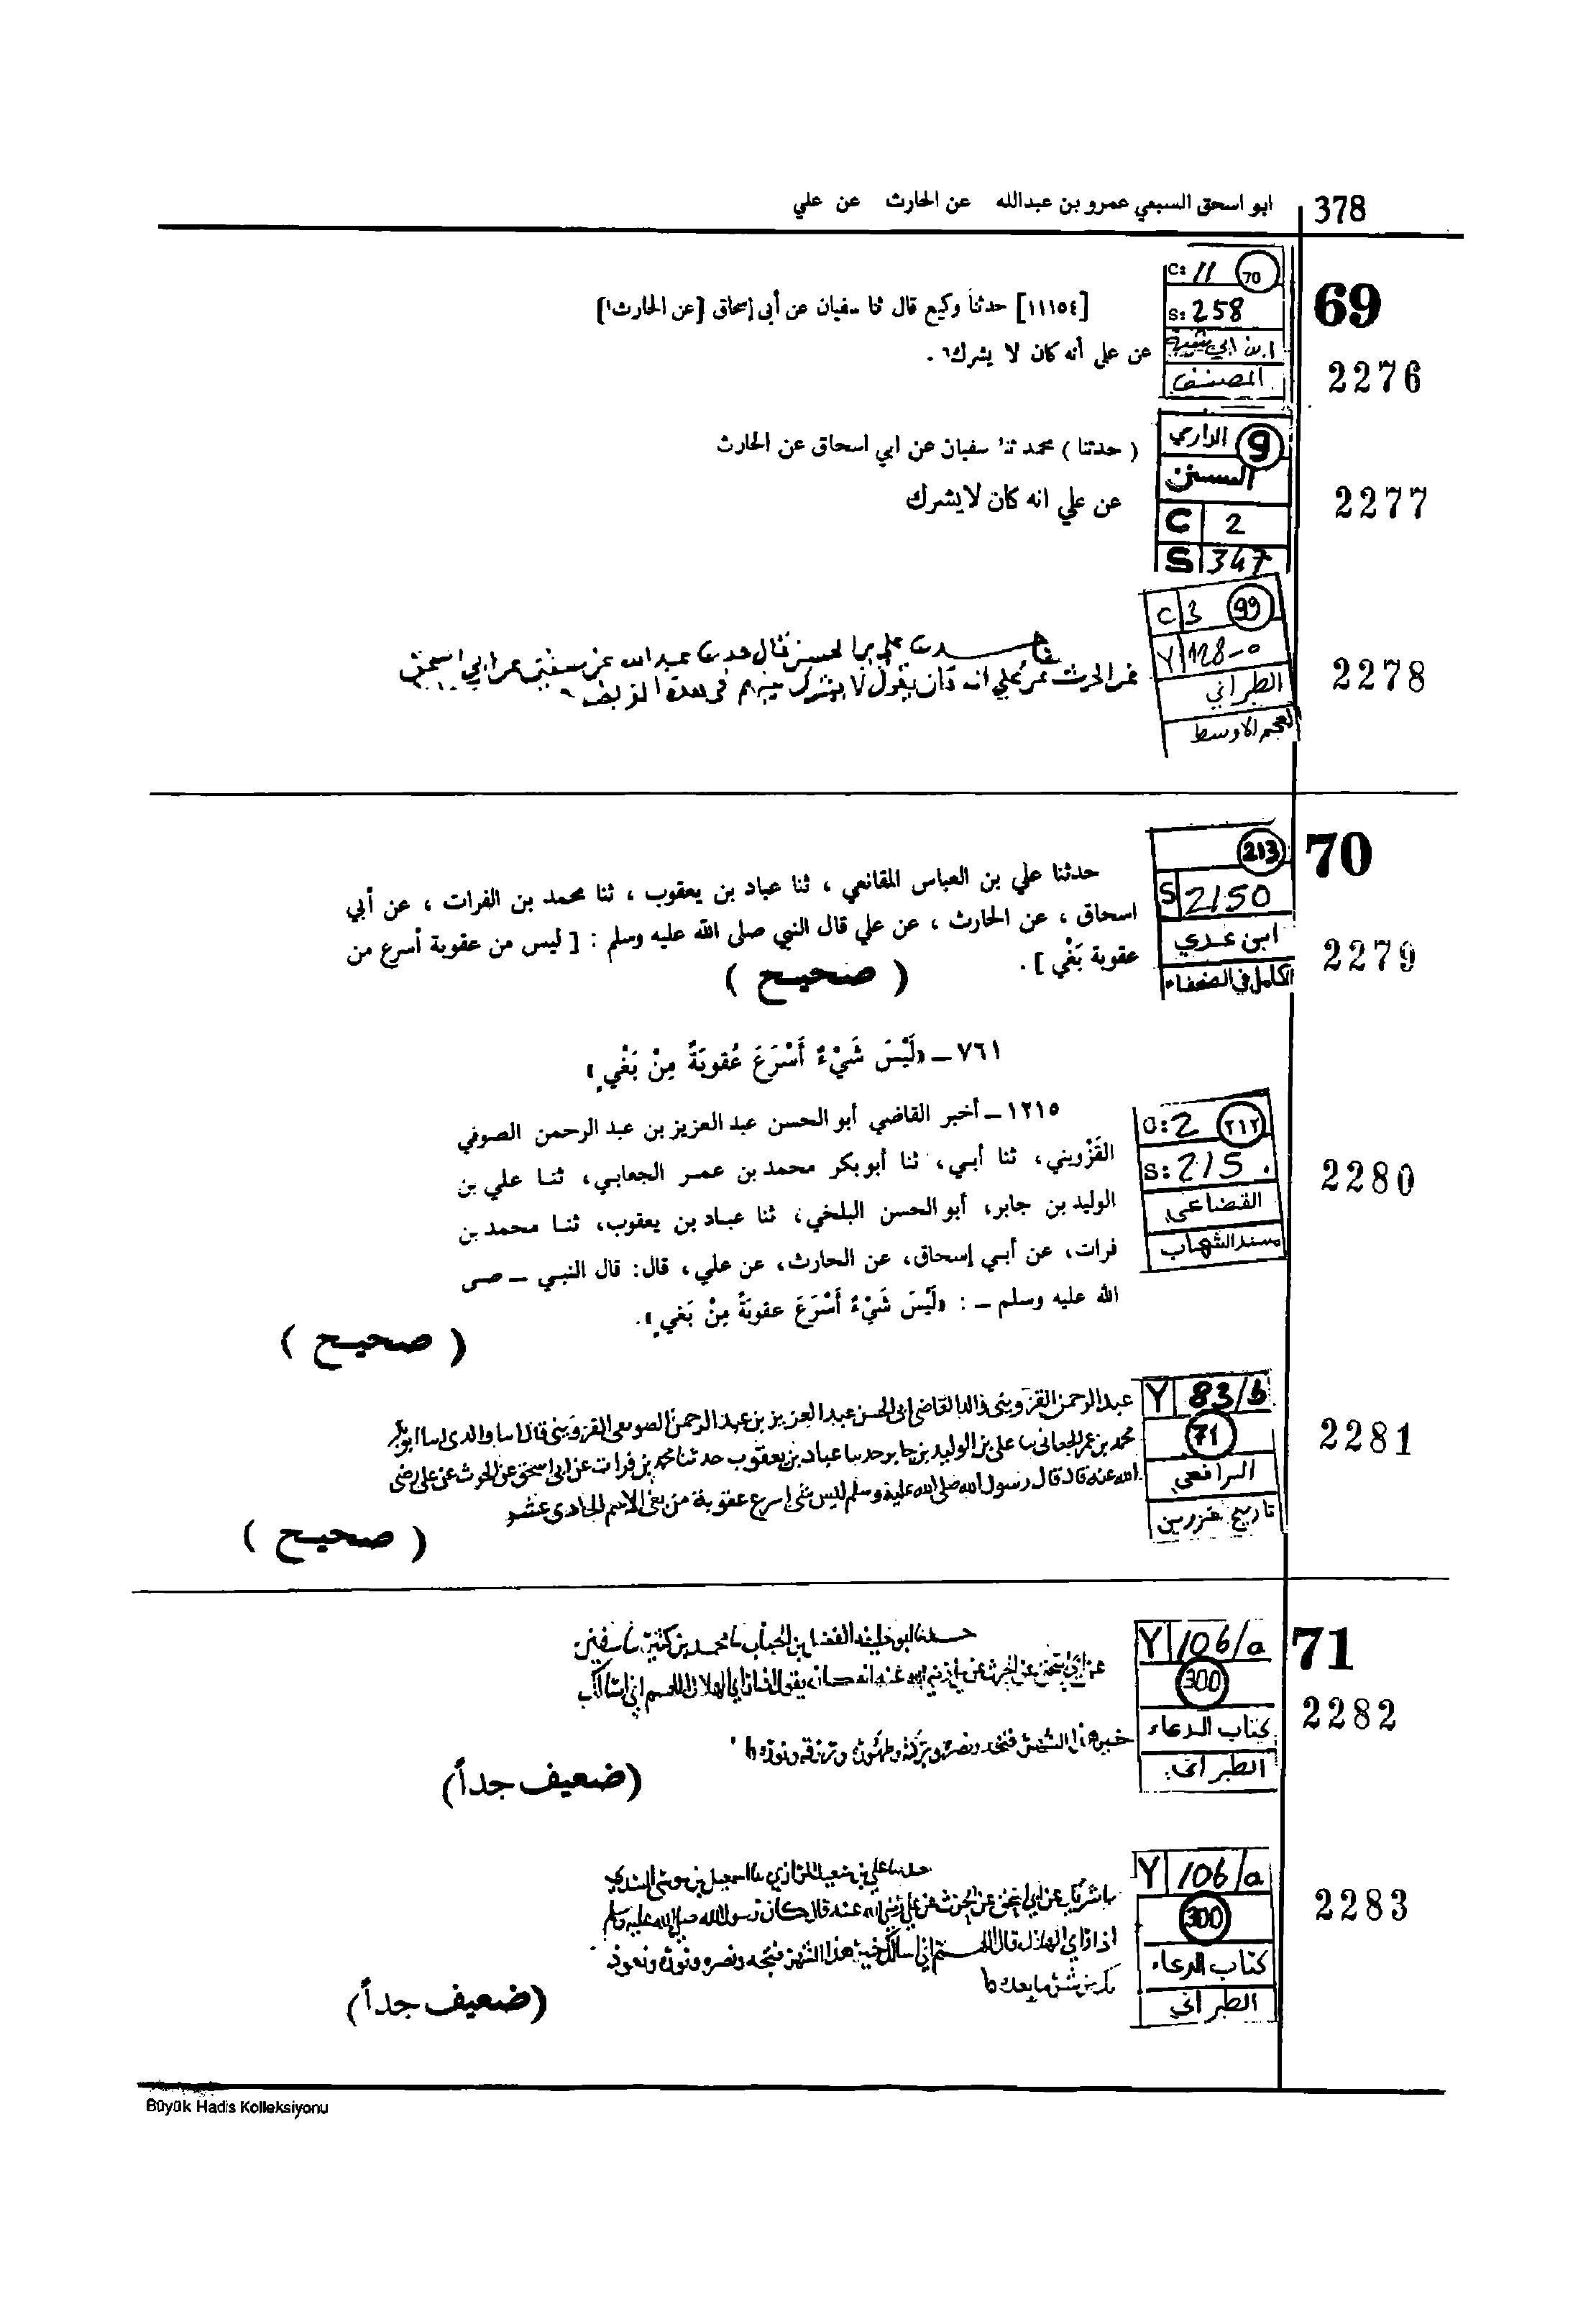 378
ابو اسحق السبعي عمرو بن عبدالله عن الحارث عن علي
69
2276
C: 11 70
S: 258
ابن ابي شيبة
المصنف
[١١١٥٤] حدثنا وكيع قال ثنا سفيان عن أبي إسحاق [عن الحارث١]
عن علي أنه كان لا يشرك٢ .
2277
الدارمي 9
السنن
C 2
S 347
( حدثنا ) محمد ثنا سفيان عن ابي اسحاق عن الحارث
عن علي انه كان لا يشرك
2278
C 3 99
Y 128-0
الطبراني
المعجم الاوسط
علي بن الحسين قال حدثنا عبد الله عن سفين عن ابي اسحق
عن الحرث عن علي انه كان يقول لا يشرك بينهم في هذه الفريضة
70
2279
213
S 2150
ابن عدي
الكامل في الضعفاء
حدثنا علي بن العباس المقانعي ، ثنا عباد بن يعقوب ، ثنا محمد بن الفرات ، عن أبي
اسحاق ، عن الحارث ، عن علي قال النبي صلى الله عليه وسلم : [ ليس من عقوبة أسرع من
عقوبة بَغْي ] .
( صحيح )
٧٦١ – «لَيْسَ شَيْءٌ أَسْرَعَ عُقوبَةً مِنْ بَغْيٍ»
2280
C: 2 ٢١٢
S: 215 .
القضاعي
مسند الشهاب
١٢١٥ – أخبر القاضي أبو الحسن عبد العزيز بن عبد الرحمن الصوفي
القَزْويني، ثنا أبي، ثنا أبو بكر محمد بن عمر الجعابي، ثنا علي بن
الوليد بن جابر، أبو الحسن البلخي، ثنا عباد بن يعقوب، ثنا محمد بن
فرات، عن أبي إسحاق، عن الحارث، عن علي، قال: قال النبي – صى
الله عليه وسلم – : «لَيْسَ شَيْءٌ أَسْرَعَ عقوبَةً مِنْ بَغيٍ».
( صحيح )
2281
Y 83/b
71
الرافعي
تاريخ قزوين
عبد الرحمن القزويني والد القاضي ابي الحسن عبد العزيز بن عبد الرحمن الصوفي القزويني قال انبا والدي انبا ابو بكر
محمد بن عمر الجعابي ثنا علي بن الوليد بن جابر حدثنا عباد بن يعقوب حدثنا محمد بن فرات عن ابي اسحق عن الحرث عن علي رضي
الله عنه قال قال رسول الله صلى الله عليه وسلم ليس شي اسرع عقوبة من بغي الاسم الحادي عشر
( صحيح )
71
2282
Y 106/a
300
كتاب الدعاء
الطبراني
حدثنا ابو خليفة الفضل بن الحباب ثنا محمد بن كثير ثنا سفين
عن ابي اسحق عن الحرث عن علي رضي الله عنه انه كان يقول اذا راي الهلال اللهم اني اسالك
خير هذا الشهر فتحه ونصره وبركته وطهوره ورزقه ونوره
(ضعيف جداً)
2283
Y 106/a
300
كتاب الدعاء
الطبراني
حدثنا علي بن سعيد الرازي ثنا اسمعيل بن موسى السدي
عن ابي اسحق عن الحرث عن علي رضي الله عنه قال كان رسول الله صلى الله عليه وسلم
اذا راي الهلال قال اللهم اني اسالك خير هذا الشهر فتحه ونصره ونوره ونعوذ
بك من شر ما بعده
(ضعيف جداً)
Büyük Hadis Kolleksiyonu